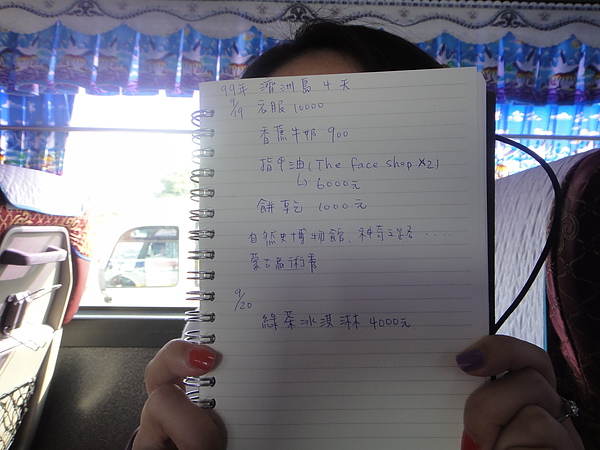 99年 濟洲島 4天
9/19 衣服 10000
香蕉牛奶 900
指甲油(The face shop ×2)
↳ 6000元
餅乾 1000元
自然史博物館、神奇之路.....
蒙古馬術秀
9/20
綠茶冰淇淋 4000元